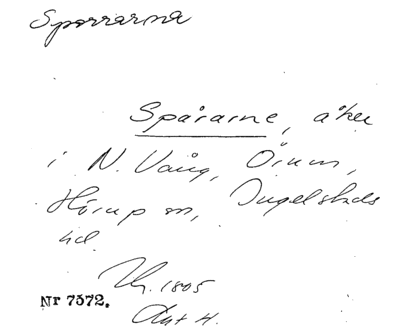 Sparrarna
Spårarne, åker
i N. Vång, Örum,
Hörup sn, Ingelstads
hd
1805
Nr 7572.
Akt H.